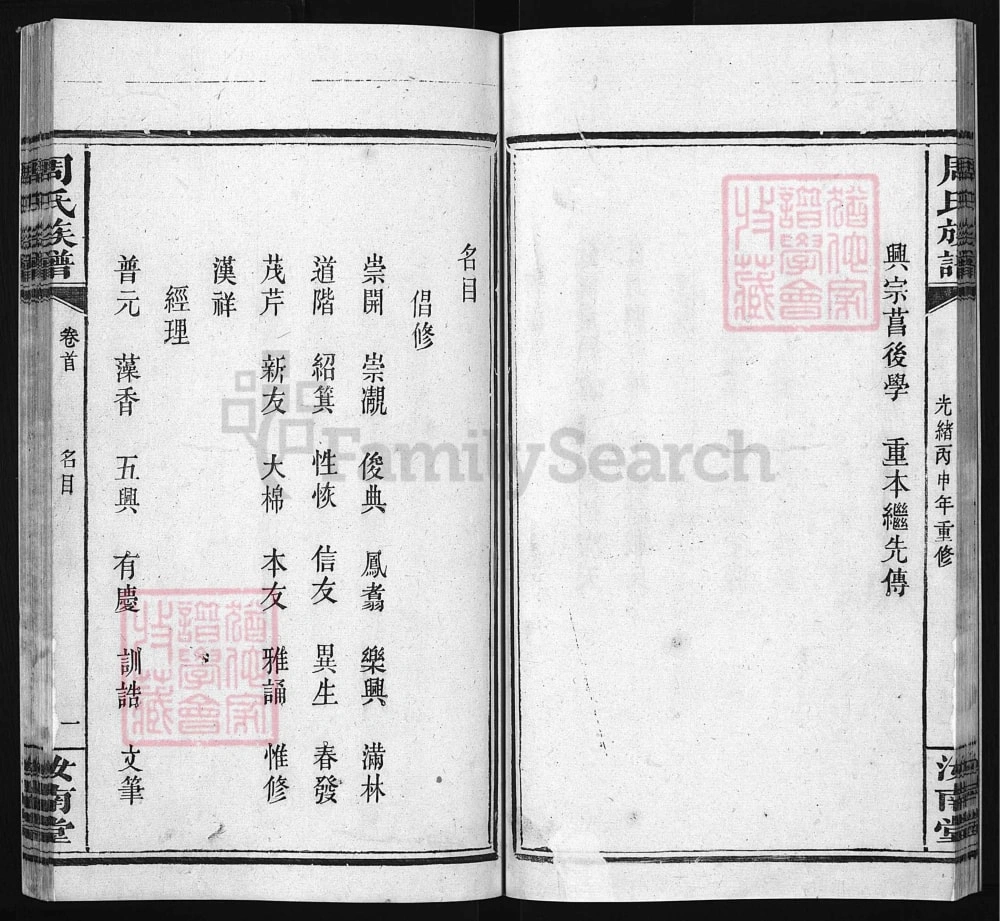 周氏族譜
光緒丙申年重修
汝南堂
興宗菖後學 重本繼先傳
名目
倡修
崇開 崇覩 俊典 鳳翥 樂興 滿林
道階 紹箕 性恢 信友 異生 春發
茂芹 新友 大棉 本友 雅誦 惟修
漢祥
經理
普元 藻香 五興 有慶 訓誥 文筆
周氏族譜
卷首
名目
一
汝南堂
猶他家譜學會收藏
猶他家譜學會收藏
FamilySearch